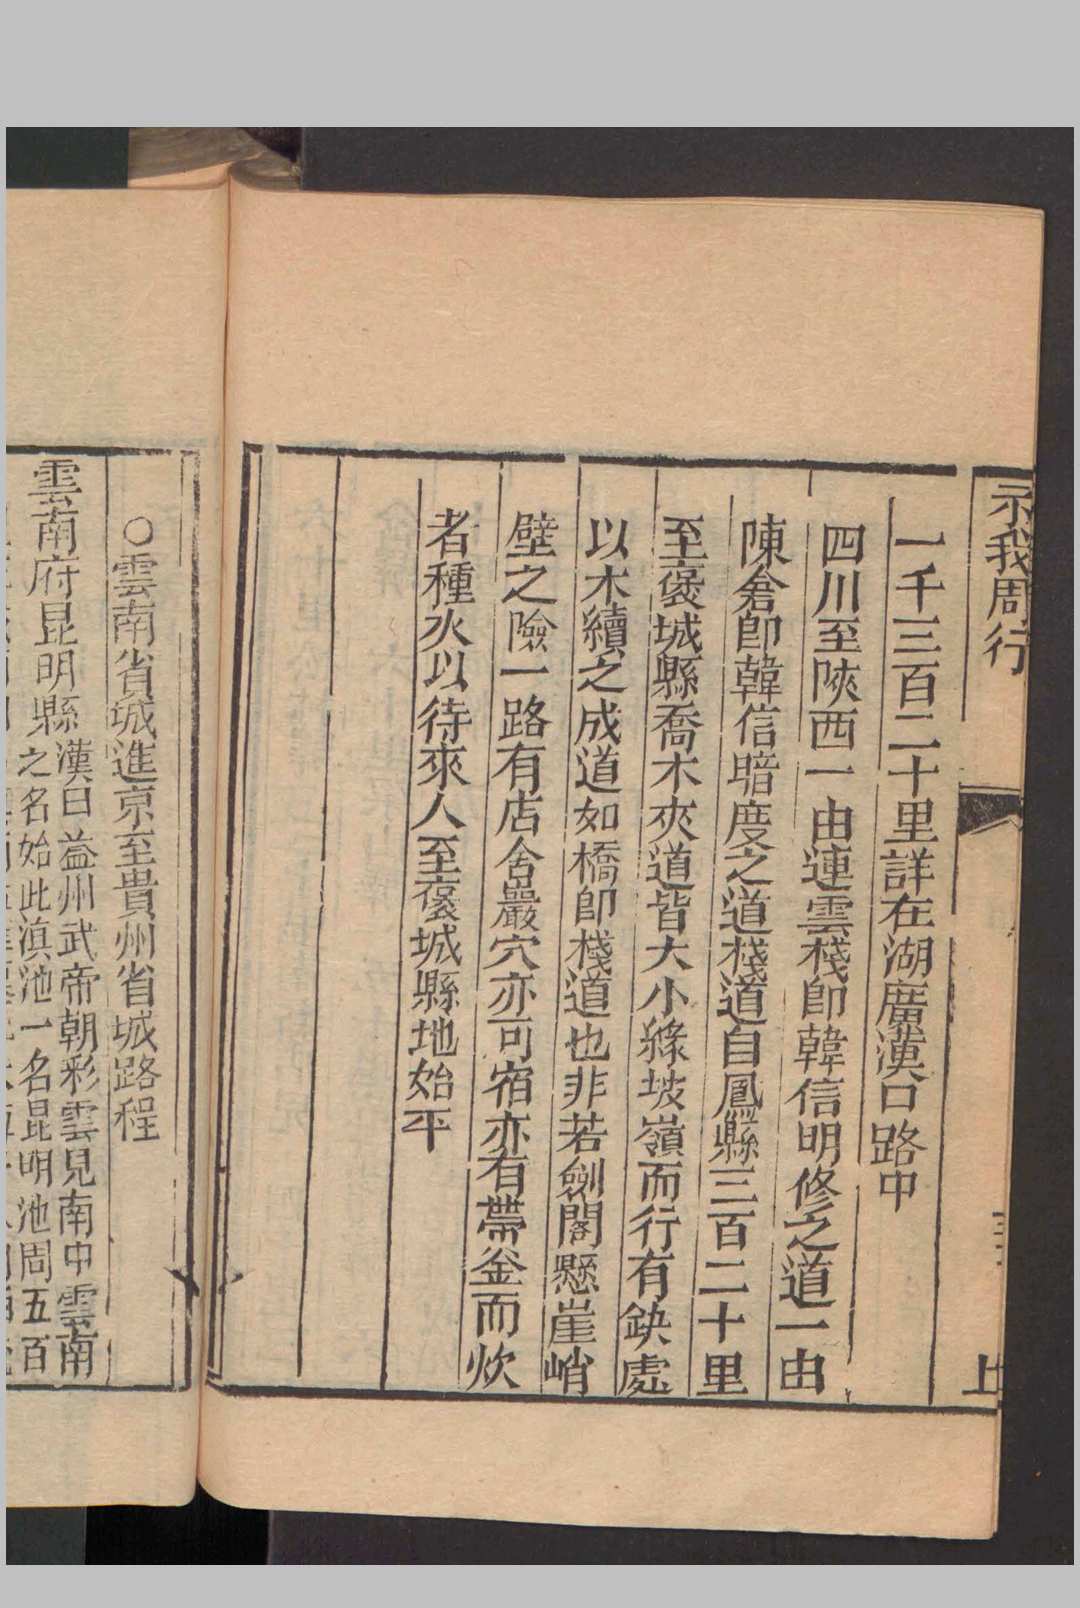 示我周行
上
一千三百二十里詳在湖廣漢口路中
四川至陝西一由連雲棧即韓信明修之道一由
陳倉即韓信暗度之道棧道自鳳縣三百二十里
至褒城縣喬木夾道皆大小緣坡嶺而行有缺處
以木續之成道如橋即棧道也非若劍閣懸崖峭
壁之險一路有店舍巖穴亦可宿亦有帶釜而炊
者種火以待來人至褒城縣地始平
○雲南省城進京至貴州省城路程
雲南府昆明縣漢曰益州武帝朝彩雲見南中雲南
之名始此滇池一名昆明池周五百